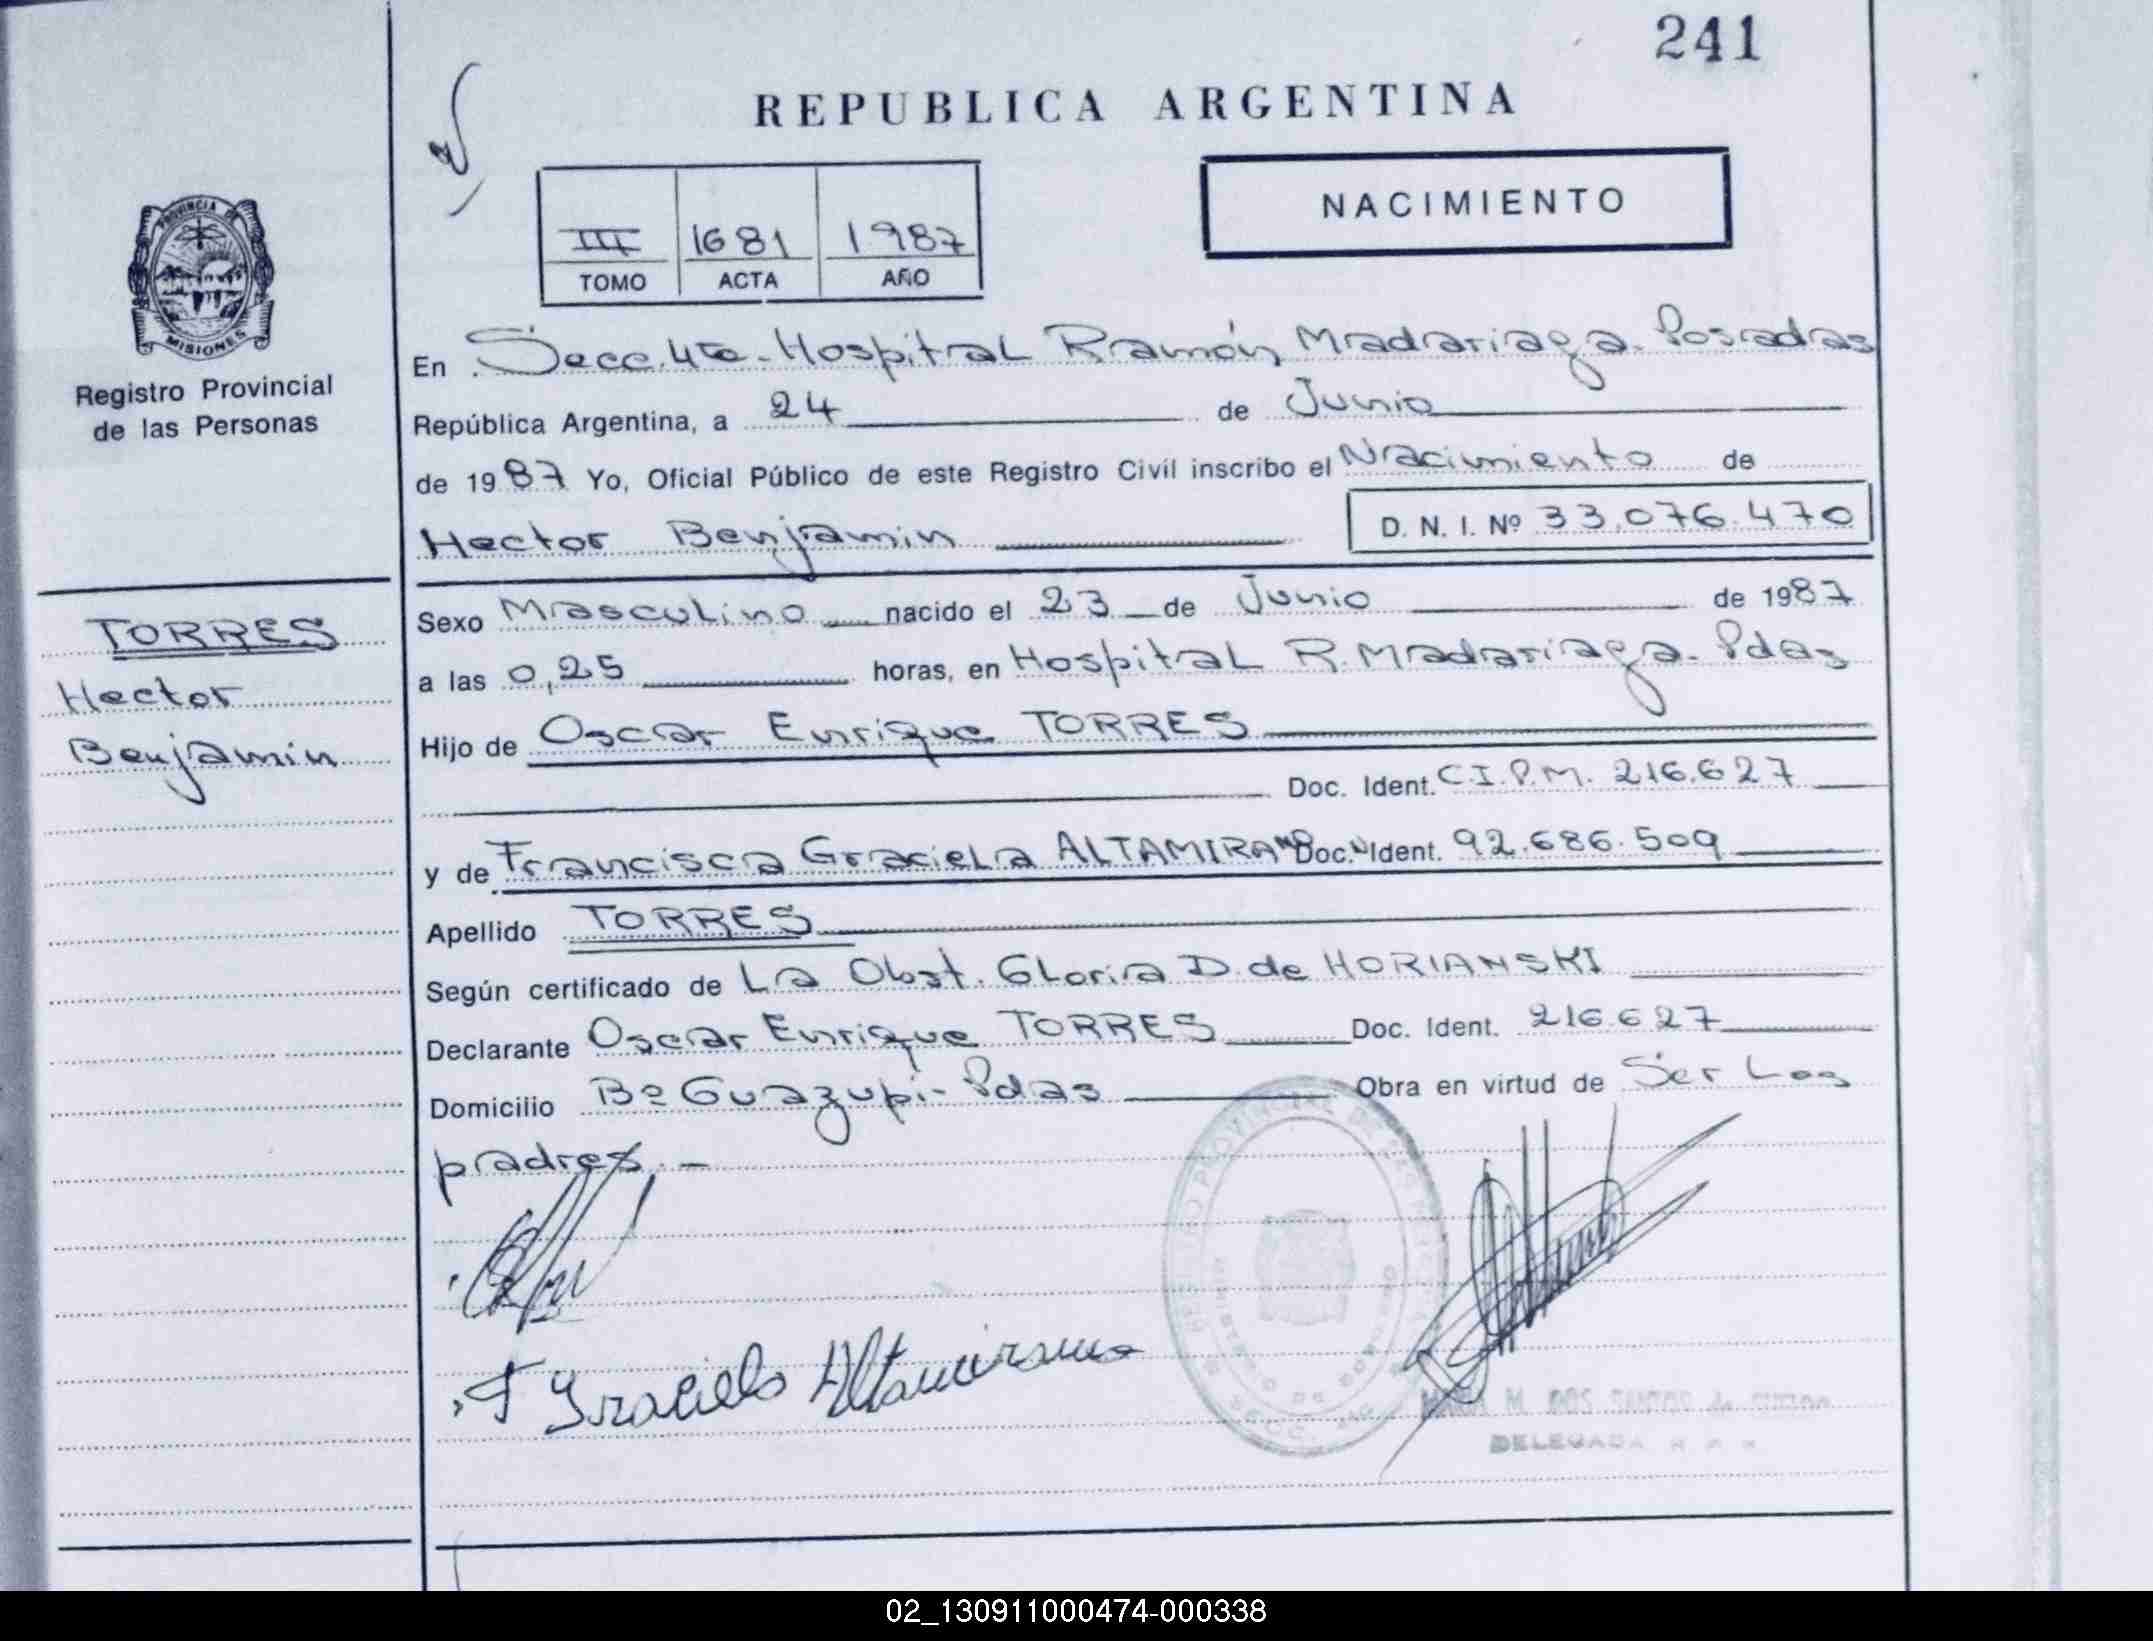 241
REPUBLICA ARGENTINA
NACIMIENTO
III 1681 1987
TOMO ACTA AÑO
PROVINCIA DE
MISIONES
Registro Provincial
de las Personas
En Secc. 4ta. Hospital Ramón Madariaga. Posadas
República Argentina, a 24 de Junio
de 1987 Yo, Oficial Público de este Registro Civil inscribo el Nacimiento de
Hector Benjamin D. N. I. Nº 33.076.470
TORRES
Hector
Benjamin
Sexo Masculino nacido el 23 de Junio de 1987
a las 0,25 horas, en Hospital R. Madariaga. Pdas
Hijo de Oscar Enrique TORRES
Doc. Ident. C.I.P.M. 216.627
y de Francisca Graciela ALTAMIRANO Doc. Ident. 92.686.509
Apellido TORRES
Según certificado de La Obst. Gloria D. de HORIANSKI
Declarante Oscar Enrique TORRES Doc. Ident. 216.627
Domicilio Bº Guazupi - Pdas Obra en virtud de Ser Los
padres. -
F Graciela Altamirano
M. DOS SANTOS de
DELEGADA
02_130911000474-000338